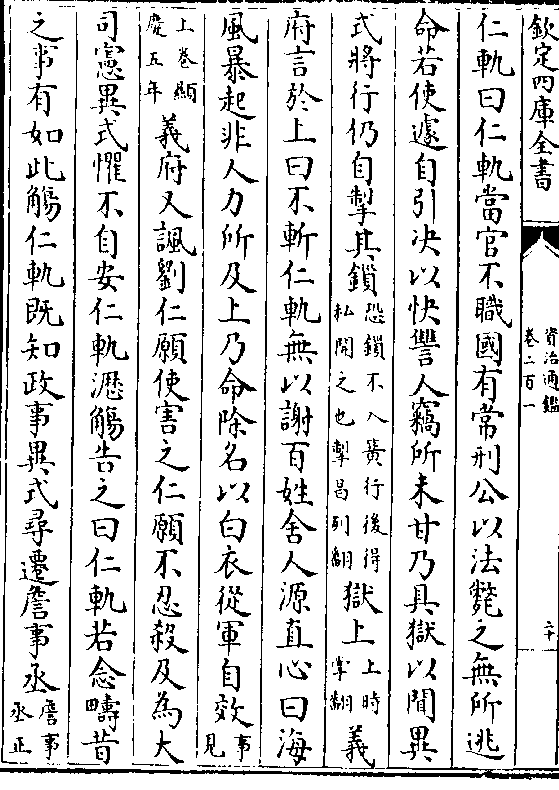 欽定四庫全書
資治通鑑
卷二百一
二十
仁軌曰仁軌當官不職國有常刑公以法斃之無所逃
命若使遽自引决以快讐人竊所未甘乃具獄以聞異
式將行仍自掣其鎖恐鎖不入簧行後得
私開之也掣昌列翻獄上上時
掌翻義
府言於上曰不斬仁軌無以謝百姓舍人源直心曰海
風暴起非人力所及上乃命除名以白衣從軍自效事
見
上卷顯
慶五年義府又諷劉仁願使害之仁願不忍殺及為大
司憲異式懼不自安仁軌瀝觴告之曰仁軌若念疇昔
之事有如此觴仁軌既知政事異式尋遷詹事丞詹事
丞正